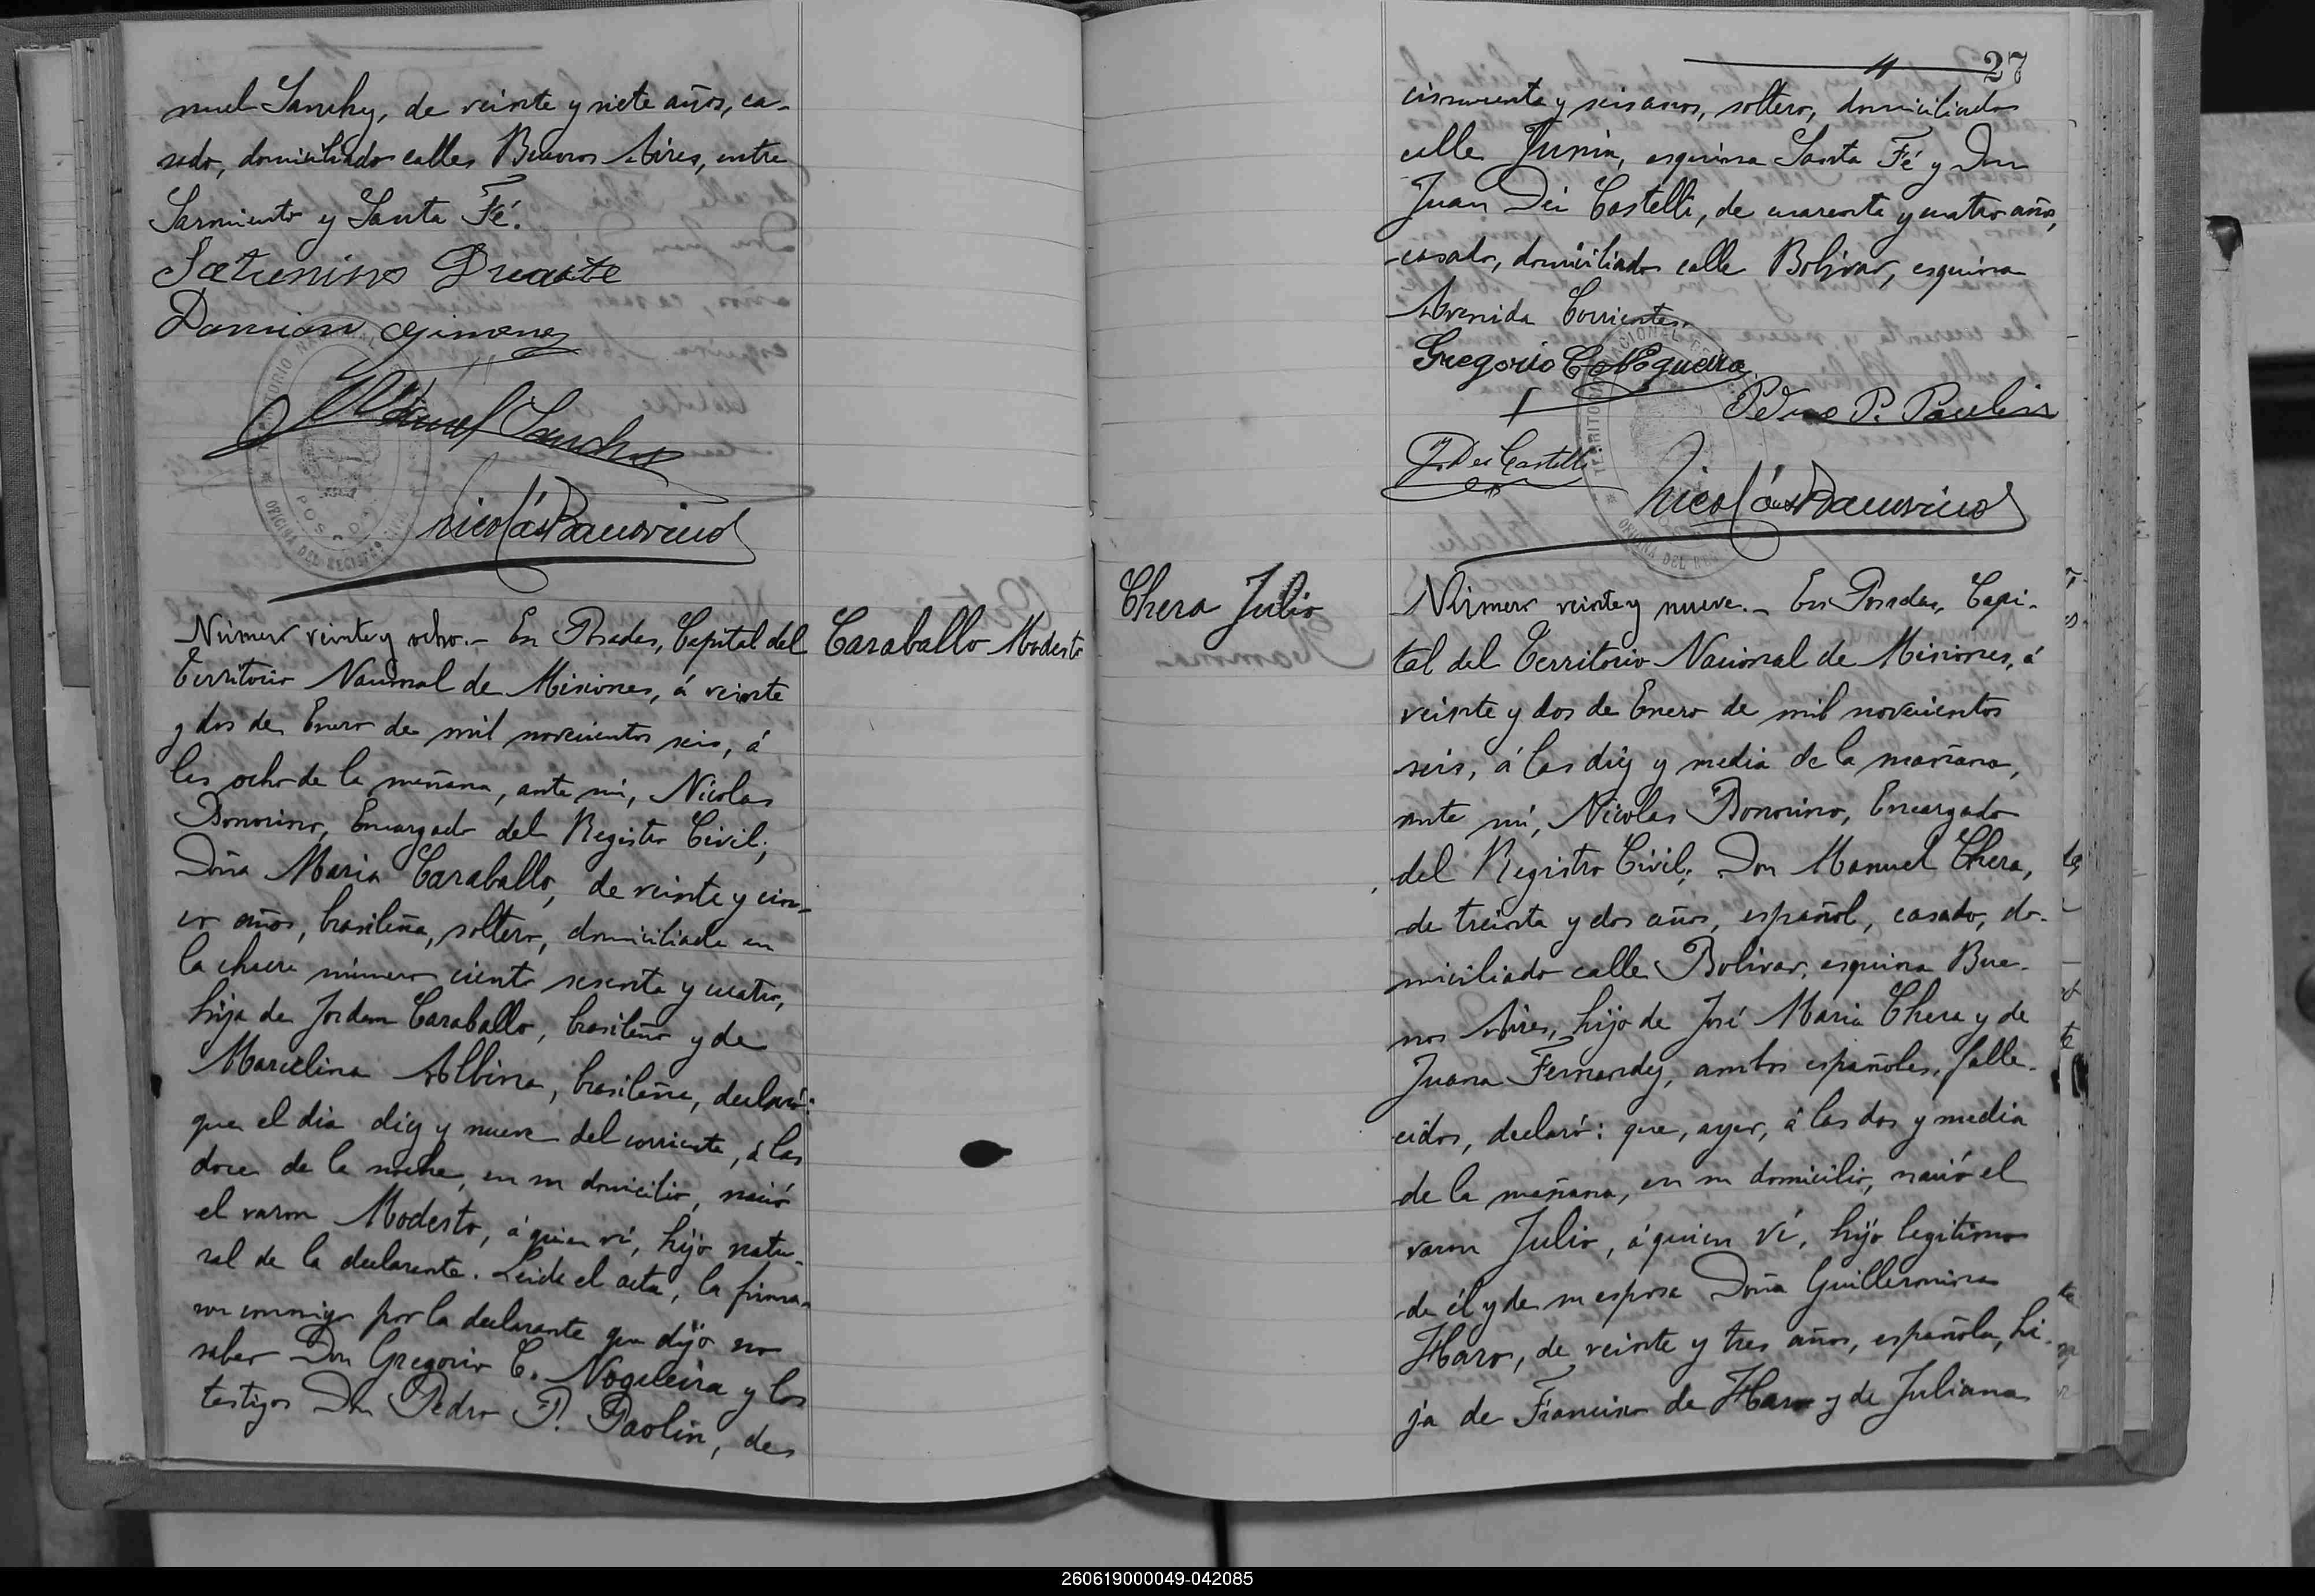 nuel Sanchez, de veinte y siete años, ca-
sado, domiciliado calles Buenos Aires, entre
Sarmiento y Santa Fé.
Saturnino Duarte
Damian Gimenez
Manuel Sanchez
Nicolás Bonorino
TERRITORIO NACIONAL
OFICINA DEL REGISTRO CIVIL
POSADAS
Número veinte y ocho.- En Posadas, Capital del
Territorio Nacional de Misiones, á veinte
y dos de Enero de mil novecientos seis, á
las ocho de la mañana, ante mi, Nicolas
Bonorino, Encargado del Registro Civil;
Doña Maria Caraballo, de veinte y cin-
co años, brasileña, soltera, domiciliada en
la chacra número ciento sesenta y cuatro,
hija de Jordan Caraballo, brasileño y de
Marcelina Albina, brasileña, declaró:
que el dia diez y nueve del corriente, á las
doce de la noche, en su domicilio, nació
el varon Modesto, á quien ví, hijo natu-
ral de la declarante. Leida el acta, la firma-
ron conmigo por la declarante que dijo no
saber Don Gregorio C. Nogueira y los
testigos Don Pedro P. Paolin, de
Caraballo Modesto
27
cincuenta y seis anos, soltero, domiciliado
calle Junin, esquina Santa Fé y Don
Juan Dei Castelli, de cuarenta y cuatro años,
casado, domiciliado calle Bolivar, esquina
Avenida Corrientes.
Gregorio C. Nogueira
Pedro P. Paulin
J. Dei Castelli
Nicolás Bonorino
TERRITORIO NACIONAL
OFICINA DEL REG
Chera Julio
Número veinte y nueve.- En Posadas, Capi-
tal del Territorio Nacional de Misiones, á
veinte y dos de Enero de mil novecientos
seis, á las diez y media de la mañana,
ante mí, Nicolas Bonorino, Encargado
del Registro Civil; Don Manuel Chera,
de treinta y dos años, español, casado, do-
miciliado calle Bolivar, esquina Bue-
nos Aires, hijo de José Maria Chera y de
Juana Fernandez, ambos españoles, falle-
cidos, declaró: que, ayer, á las dos y media
de la mañana, en su domicilio, nació el
varon Julio, á quien ví, hijo legitimo
de él y de su esposa Doña Guillermina
Haro, de veinte y tres años, española, hi-
ja de Francisco de Haro y de Juliana
260619000049-042085